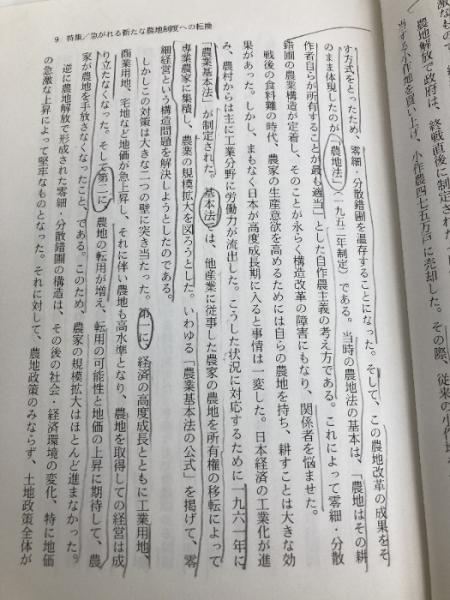 9 特集／急がれる新たな農地制度への転換
激なものだっ
農地解放で政府は、終戦直後に制定された
当する小作地を買い上げ、小作農四七五万戸に売却した。その際、従来の小作地
す方式をとったため、零細・分散錯圃を温存することになった。そして、この農地改革の成果をそ
のまま体現したのが「農地法」(一九五二年制定)である。当時の農地法の基本は、「農地はその耕
作者自らが所有することが最も適当」とした自作農主義の考え方である。これによって零細・分散
錯圃の農業構造が定着し、そのことが永らく構造改革の障害にもなり、関係者を悩ませた。
戦後の食料難の時代、農家の生産意欲を高めるためには自らの農地を持ち、耕すことは大きな効
果があった。しかし、まもなく日本が高度成長期に入ると事情は一変した。日本経済の工業化が進
み、農村からは主に工業分野に労働力が流出した。こうした状況に対応するために一九六一年に
「農業基本法」が制定された。基本法では、他産業に従事した農家の農地を所有権の移転によって
専業農家に集積し、農業の規模拡大を図ろうとした。いわゆる「農業基本法の公式」を掲げて、零
細経営という構造問題を解決しようとしたのである。
しかしこの対策は大きな二つの壁に突き当たった。第一に、経済の高度成長とともに工業用地、
商業用地、宅地など地価が急上昇し、それに伴い農地も高水準となり、農地を取得しての経営は成
り立たなくなった。そして第二に、農地の転用が増え、転用の可能性と地価の上昇に期待して、農
家が農地を手放さなくなったこと、である。このため、農家の規模拡大はほとんど進まなかった。
逆に農地解放で形成された零細・分散錯圃の構造は、その後の社会・経済環境の変化、特に地価
の急激な上昇によって堅牢なものとなった。それに対して、農地政策のみならず、土地政策全体が